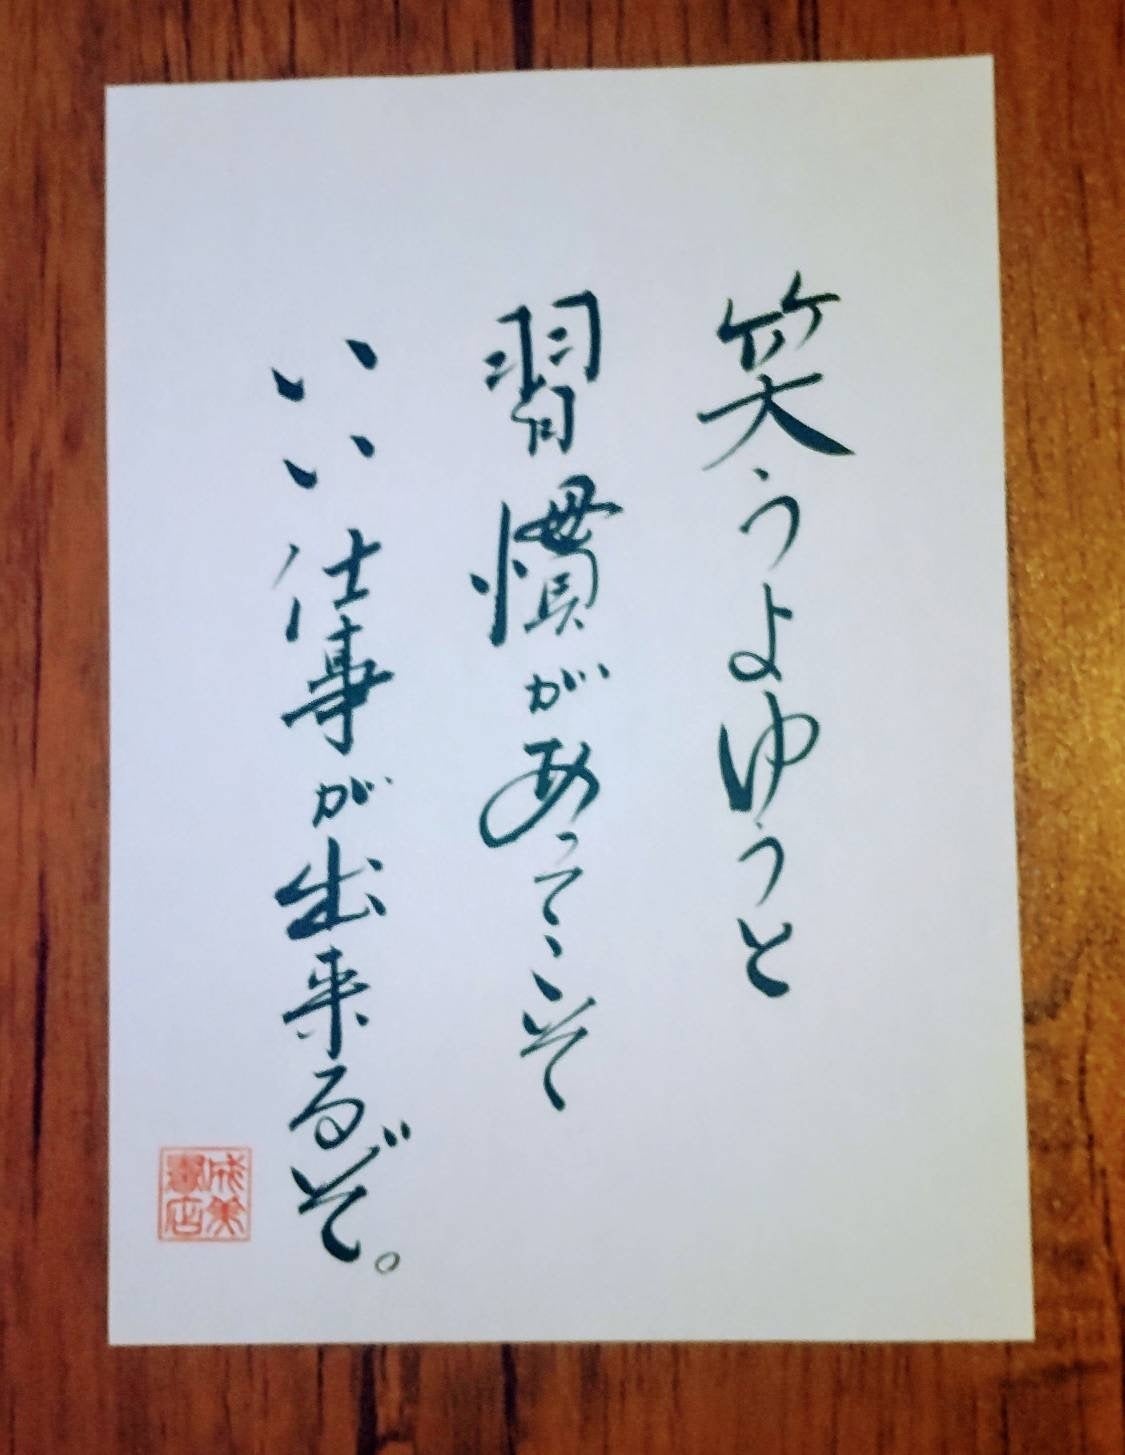 笑うよゆうと
習慣があってこそ
いい仕事が出来るぞ。
成美
書店